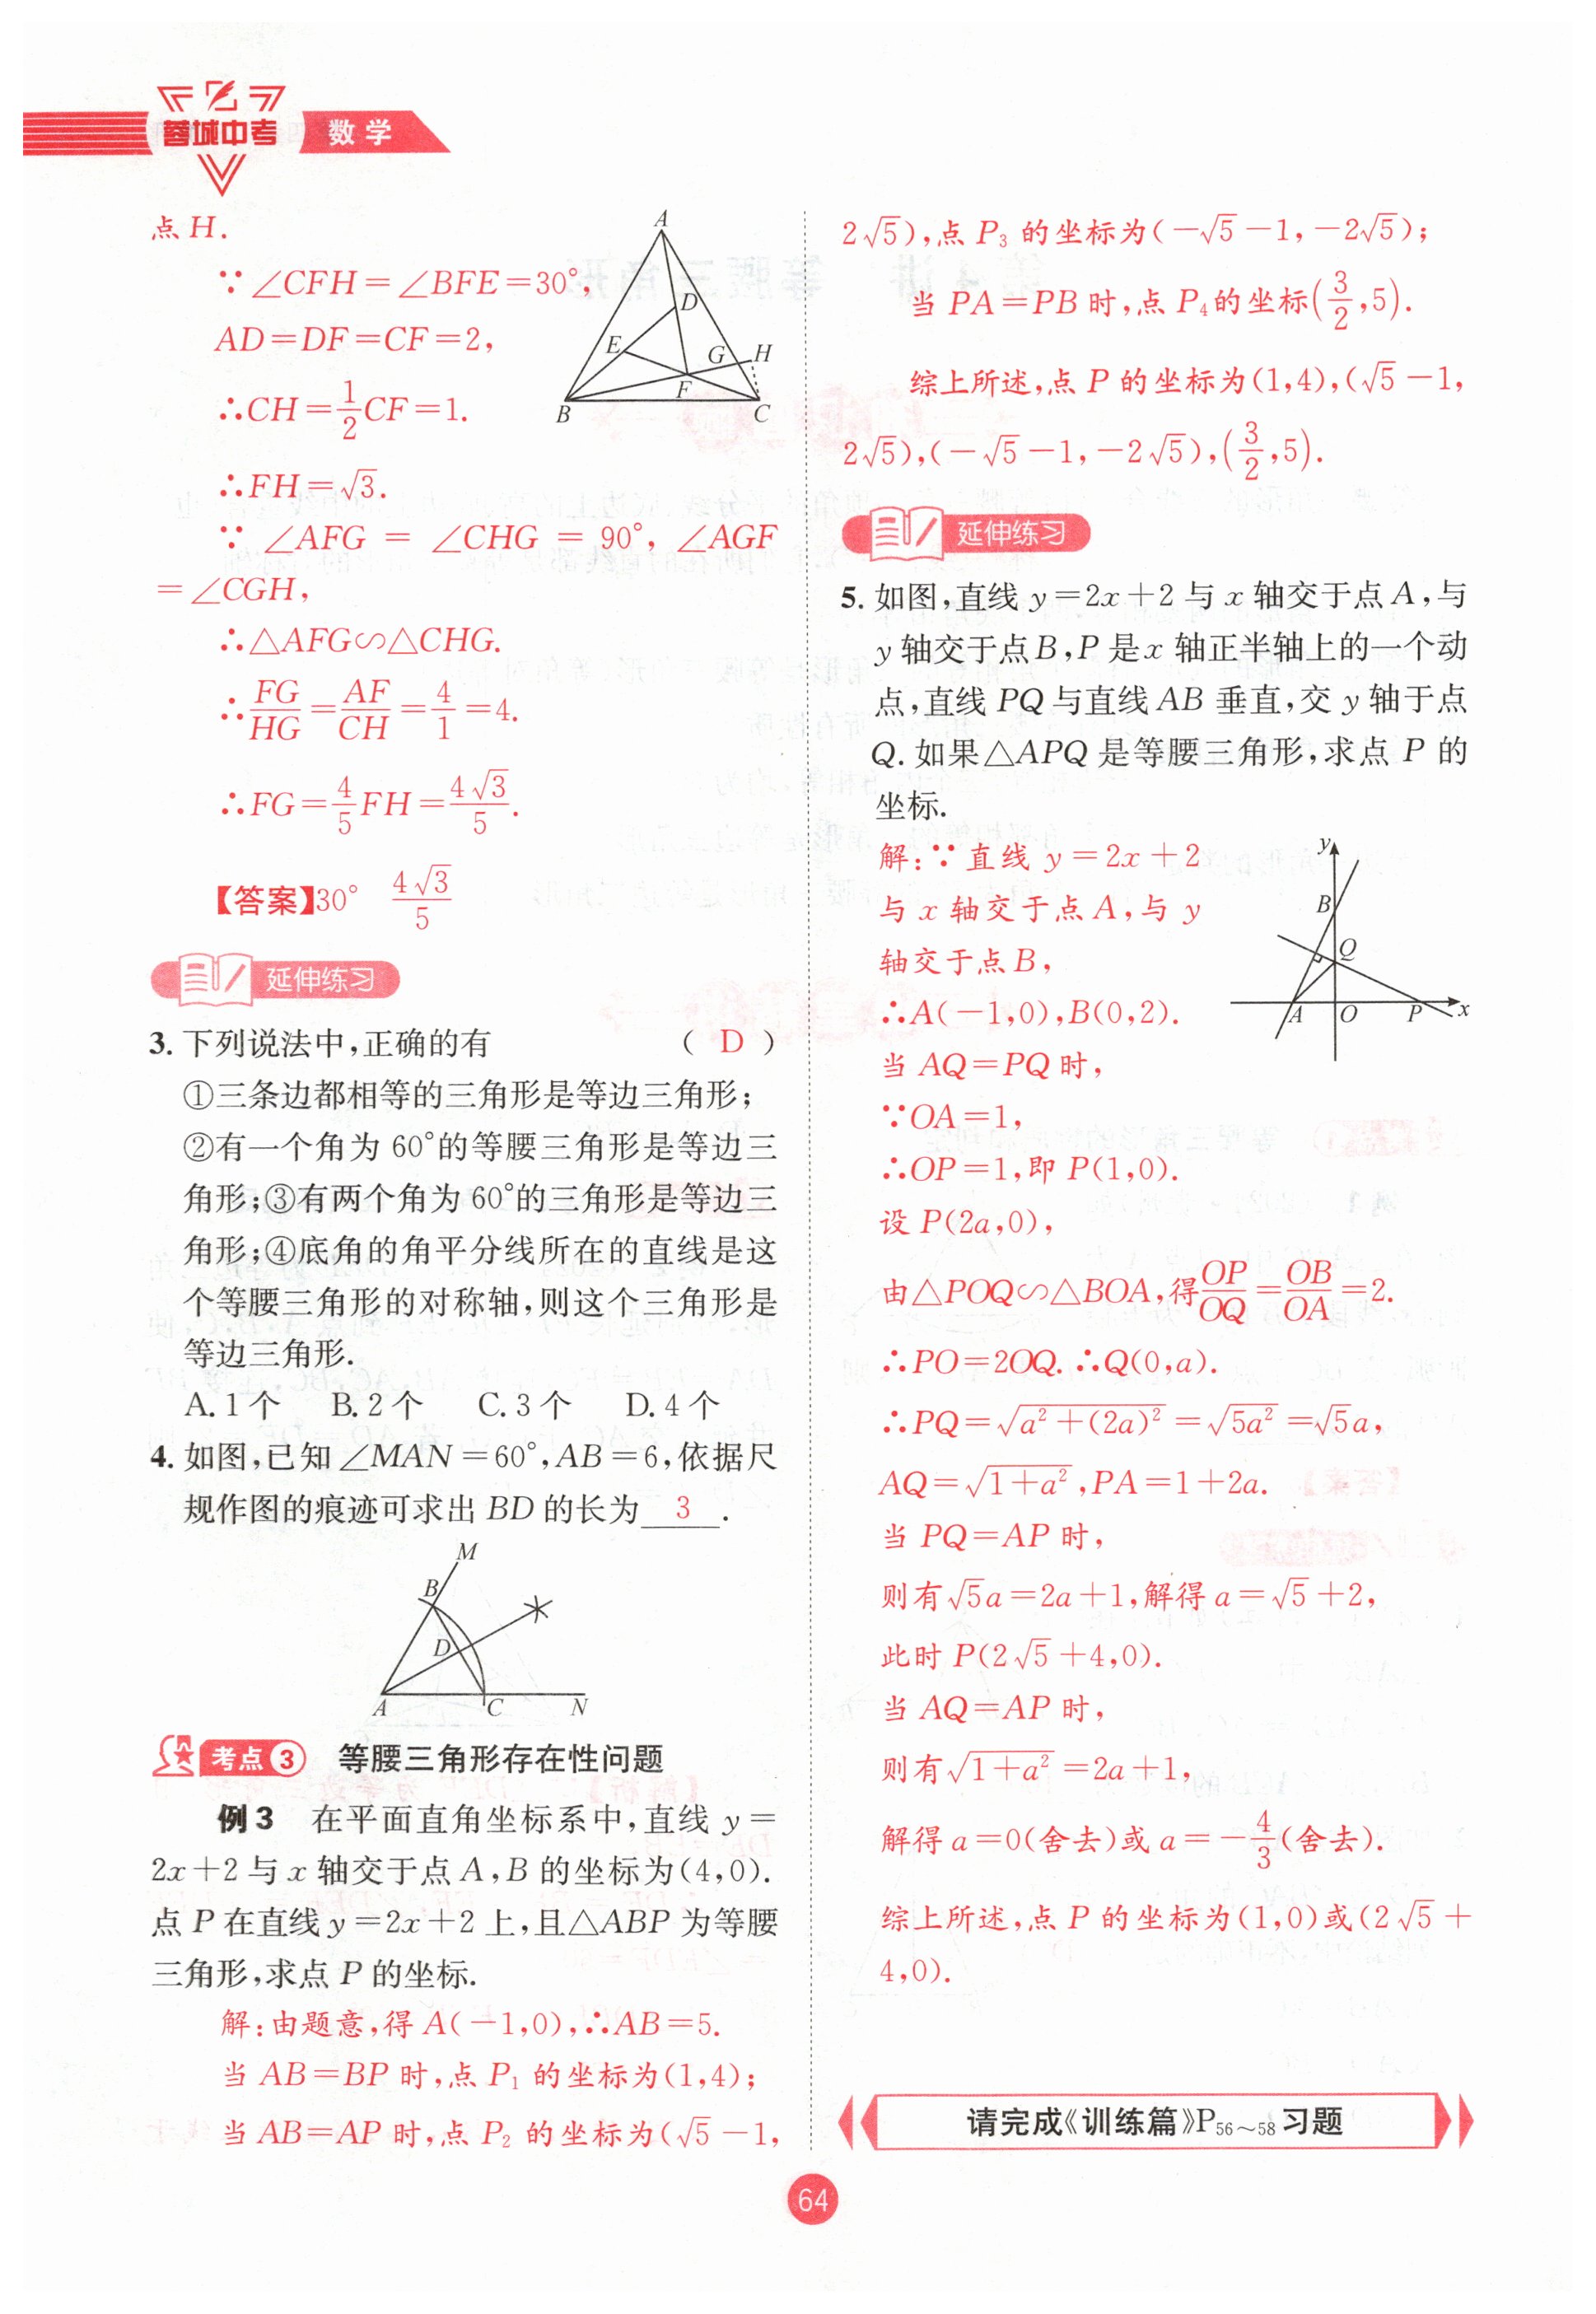 蓉城中考 数学
点 H.
∵∠CFH=∠BFE=30°,
AD=DF=CF=2,
∴CH=1/2CF=1.
∴FH=√3.
∵ ∠AFG = ∠CHG = 90°, ∠AGF
=∠CGH,
∴△AFG∽△CHG.
∴FG/HG=AF/CH=4/1=4.
∴FG=4/5FH=4√3/5.
【答案】30° 4√3/5
A
D
E
G
H
F
B
C
延伸练习
3. 下列说法中,正确的有 ( D )
①三条边都相等的三角形是等边三角形;
②有一个角为 60°的等腰三角形是等边三
角形;③有两个角为 60°的三角形是等边三
角形;④底角的角平分线所在的直线是这
个等腰三角形的对称轴,则这个三角形是
等边三角形.
A. 1 个 B. 2 个 C. 3 个 D. 4 个
4. 如图,已知∠MAN=60°,AB=6,依据尺
规作图的痕迹可求出 BD 的长为 3 .
M
B
D
A
C
N
考点3 等腰三角形存在性问题
例 3 在平面直角坐标系中,直线 y=
2x+2 与 x 轴交于点 A,B 的坐标为(4,0).
点 P 在直线 y=2x+2 上,且△ABP 为等腰
三角形,求点 P 的坐标.
解:由题意,得 A(-1,0),∴AB=5.
当 AB=BP 时,点 P₁ 的坐标为(1,4);
当 AB=AP 时,点 P₂ 的坐标为(√5-1,
2√5),点 P₃ 的坐标为(-√5-1,-2√5);
当 PA=PB 时,点 P₄的坐标(3/2,5).
综上所述,点 P 的坐标为(1,4),(√5-1,
2√5),(-√5-1,-2√5),(3/2,5).
延伸练习
5. 如图,直线 y=2x+2 与 x 轴交于点 A,与
y 轴交于点 B,P 是 x 轴正半轴上的一个动
点,直线 PQ 与直线 AB 垂直,交 y 轴于点
Q. 如果△APQ 是等腰三角形,求点 P 的
坐标.
解:∵直线 y=2x+2
与 x 轴交于点 A,与 y
轴交于点 B,
∴A(-1,0),B(0,2).
y
B
Q
A
O
P
x
当 AQ=PQ 时,
∵OA=1,
∴OP=1,即 P(1,0).
设 P(2a,0),
由△POQ∽△BOA,得OP/OQ=OB/OA=2.
∴PO=2OQ. ∴Q(0,a).
∴PQ=√(a²+(2a)²)=√(5a²)=√5a,
AQ=√(1+a²),PA=1+2a.
当 PQ=AP 时,
则有√5a=2a+1,解得 a=√5+2,
此时 P(2√5+4,0).
当 AQ=AP 时,
则有√(1+a²)=2a+1,
解得 a=0(舍去)或 a=-4/3(舍去).
综上所述,点 P 的坐标为(1,0)或(2√5+
4,0).
请完成《训练篇》P₅₆~₅₈习题
64